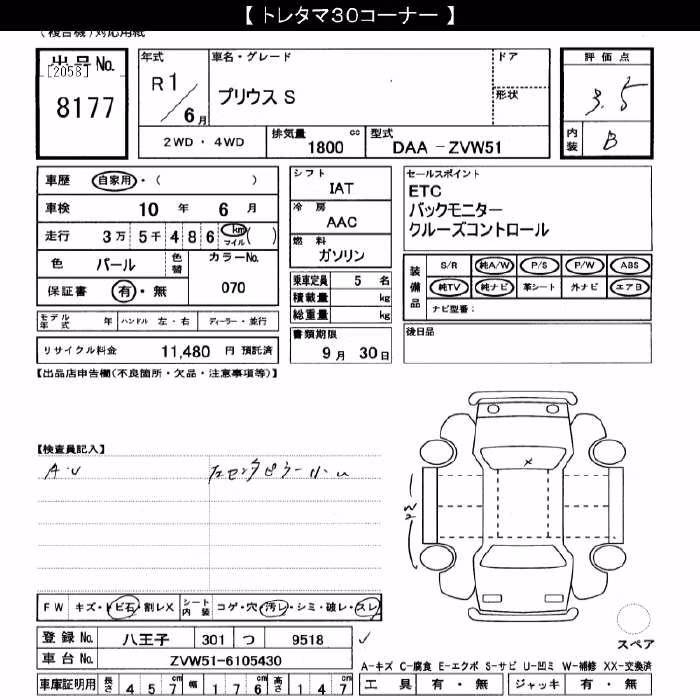 【 トレタマ30コーナー 】
(複合機)対応用紙
出品No.
[2058]
8177
年式
R1/6月
2WD・4WD
車名・グレード
プリウス S
ドア
形状
排気量 cc
1800
型式
DAA－ZVW51
評価点
3.5
内装
B
車歴 自家用・( )
車検 10年 6月
走行 3万5千486 km マイル ( )
色 パール 色替
カラーNo.
070
保証書 有・無
シフト
IAT
冷房
AAC
燃料
ガソリン
乗車定員 5名
積載量 kg
総重量 kg
モデル年式 年 ハンドル 左・右 ディーラー・並行
リサイクル料金 11,480 円 預託済
書類期限
9月 30日
セールスポイント
ETC
バックモニター
クルーズコントロール
装備品
S/R 純A/W P/S P/W ABS
純TV 純ナビ 革シート 外ナビ エアB
ナビ型番:
後日品
【出品店申告欄(不良箇所・欠品・注意事項等)】
【検査員記入】
A・U
X
W2
FW キズ・トビ石・割レX シート内装 コゲ・穴・汚レ・シミ・破レ・スレ
登録No. 八王子 301 つ 9518
車台No. ZVW51-6105430
車庫証明用 長さ 457cm 幅 176cm 高さ 147cm
スペア
A-キズ C-腐食 E-エクボ S-サビ U-凹ミ W-補修 XX-交換済
工具 有・無 ジャッキ 有・無